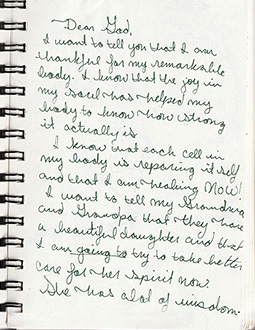 Dear God,
I want to tell you that I am
thankful for my remarkable
body. I know that the joy in
my soul has helped my
body to know how strong
it actually is
I know that each cell in
my body is reparing itself
and that I am healing NOW!
I want to tell my Grandma
and Grandpa that they have
a beautiful daughter and that
I am going to try to take better
care for her spirit now.
She has a lot of wisdom.